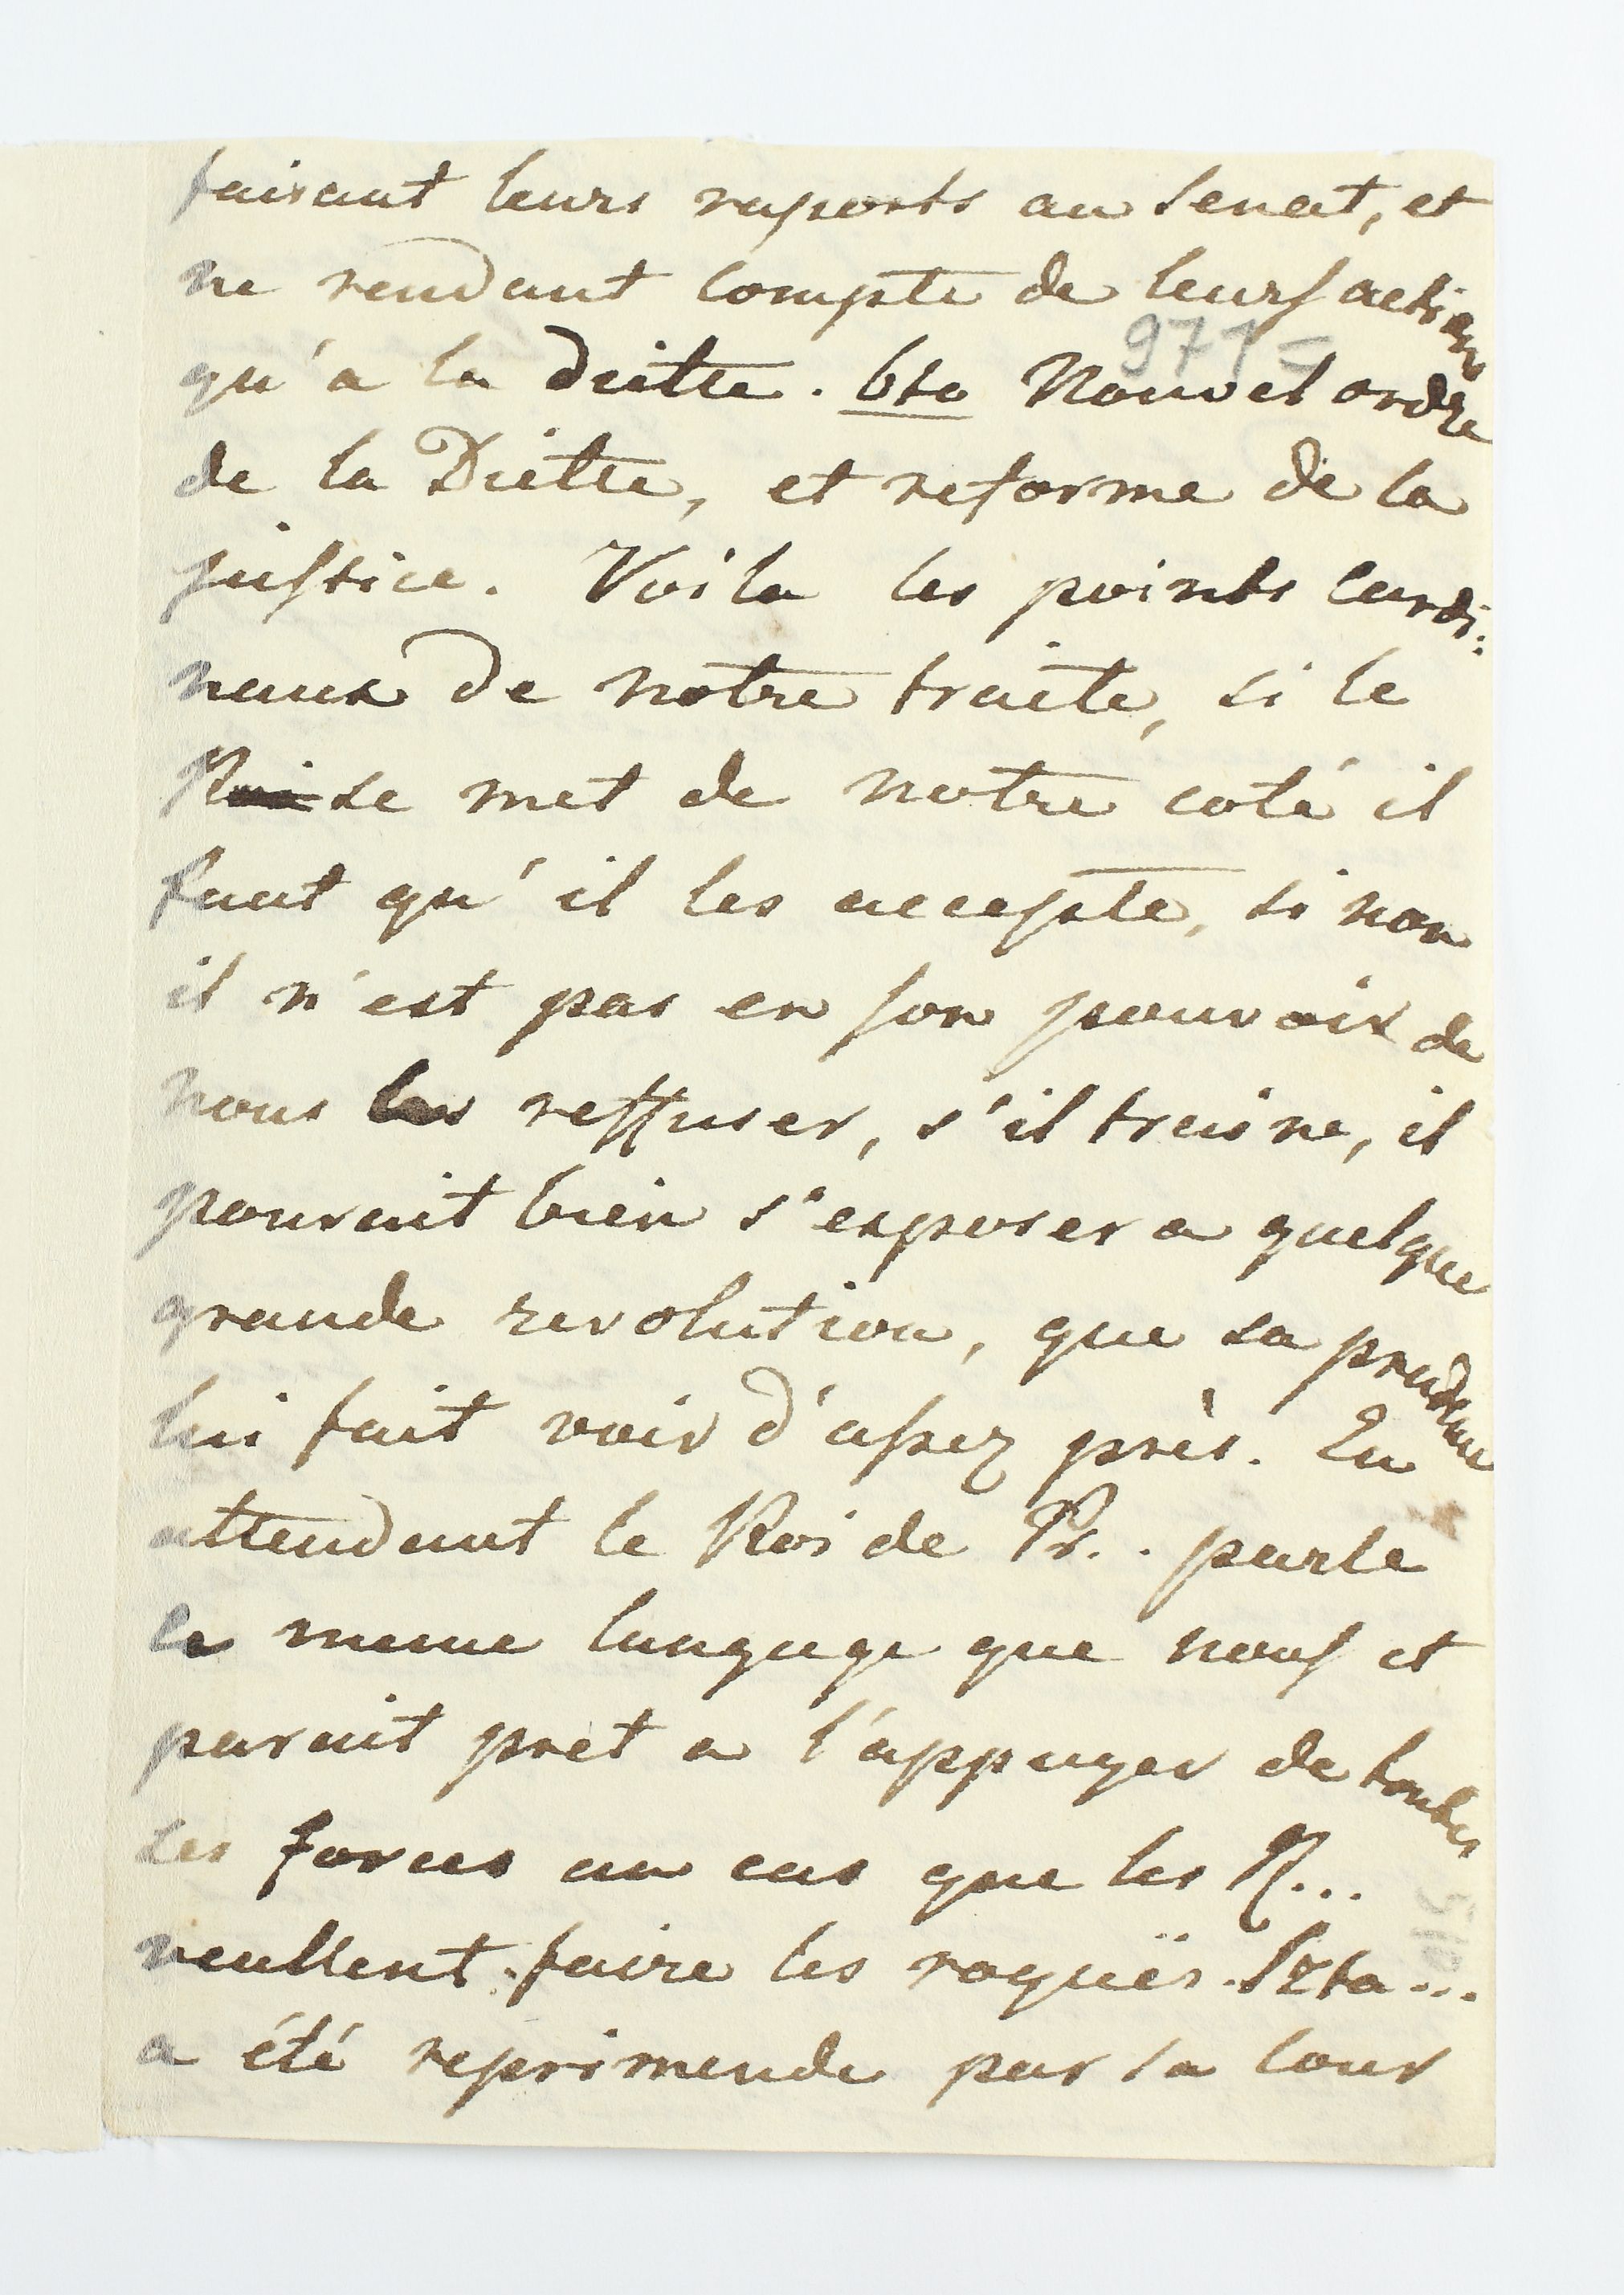 faisant leurs raports au Senat, et
ne rendant compte de leurs actions
971 =
qu'a la diette. 6to Nouvel ordre
de la Diette, et reforme de la
justice. Voila les points cardi:
naux de notre traite, si le
Roi se met de notre coté il
faut qu'il les accepte, si non
il n'est pas en son pouvoir de
nous les reffuser, s'il traine, il
pourait bien s'exposer a quelque
grande revolution, que sa prudence
lui fait voir d'assez près. En
attendant le Roi de Pr.. parle
le meme langage que nous et
parait pret a l'appuyer de toutes
ses forces au cas que les R...
veullent faire les roguës. Szta...
a été reprimende par sa cour